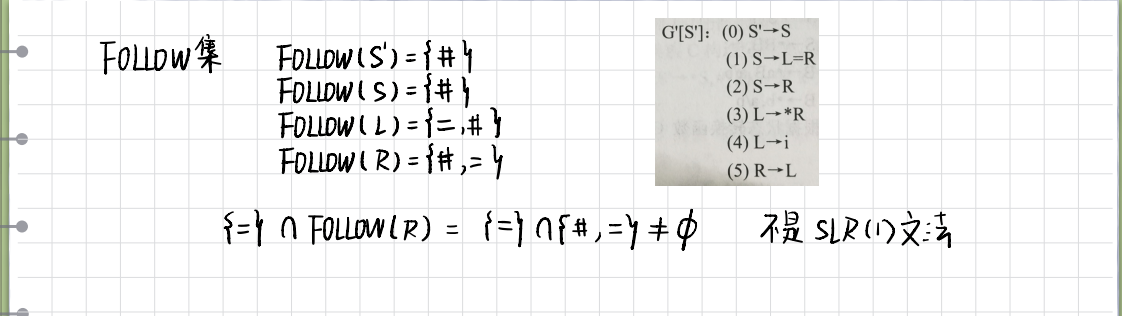 FOLLOW集
FOLLOW(S')={#}
FOLLOW(S)={#}
FOLLOW(L)={=,#}
FOLLOW(R)={#,=}
G'[S']: (0) S'→S
(1) S→L=R
(2) S→R
(3) L→*R
(4) L→i
(5) R→L
{=} ∩ FOLLOW(R) = {=} ∩ {#,=} ≠ ∅ 不是 SLR(1)文法